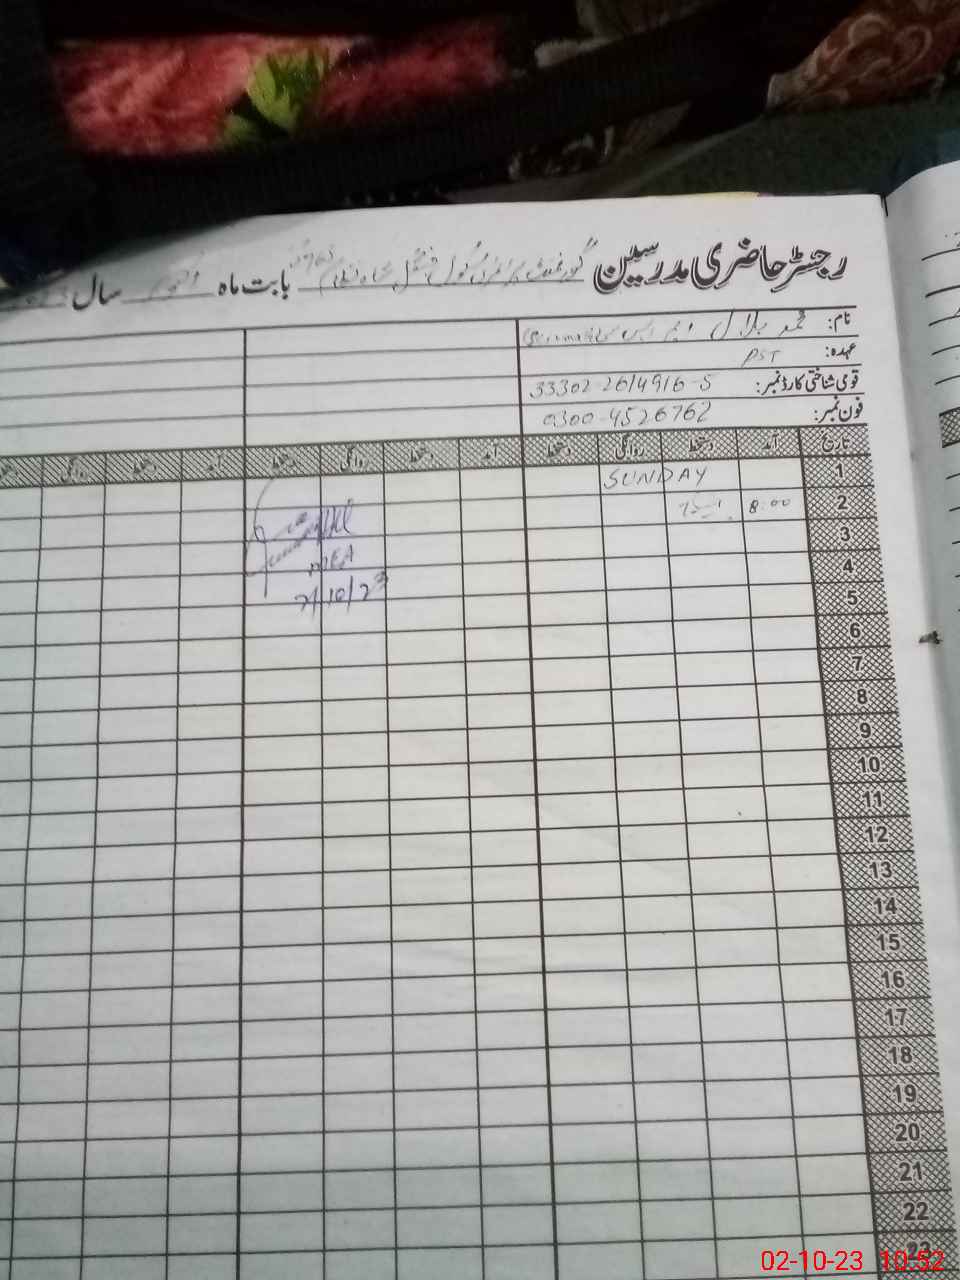 رجسٹر حاضری مدرسین گورنمنٹ پرائمری سکول بابت ماہ اکتوبر سال
نام: محمد بلال
عہدہ: PST
قومی شناختی کارڈ نمبر: 33302-2614916-5
فون نمبر: 0300-4526762
تاریخ آمد دستخط روانگی دستخط آمد دستخط روانگی دستخط آمد دستخط روانگی
1 SUNDAY
2 8:00
3
4 MEA
5 2/10/23
6
7
8
9
10
11
12
13
14
15
16
17
18
19
20
21
22
23
02-10-23 10:52